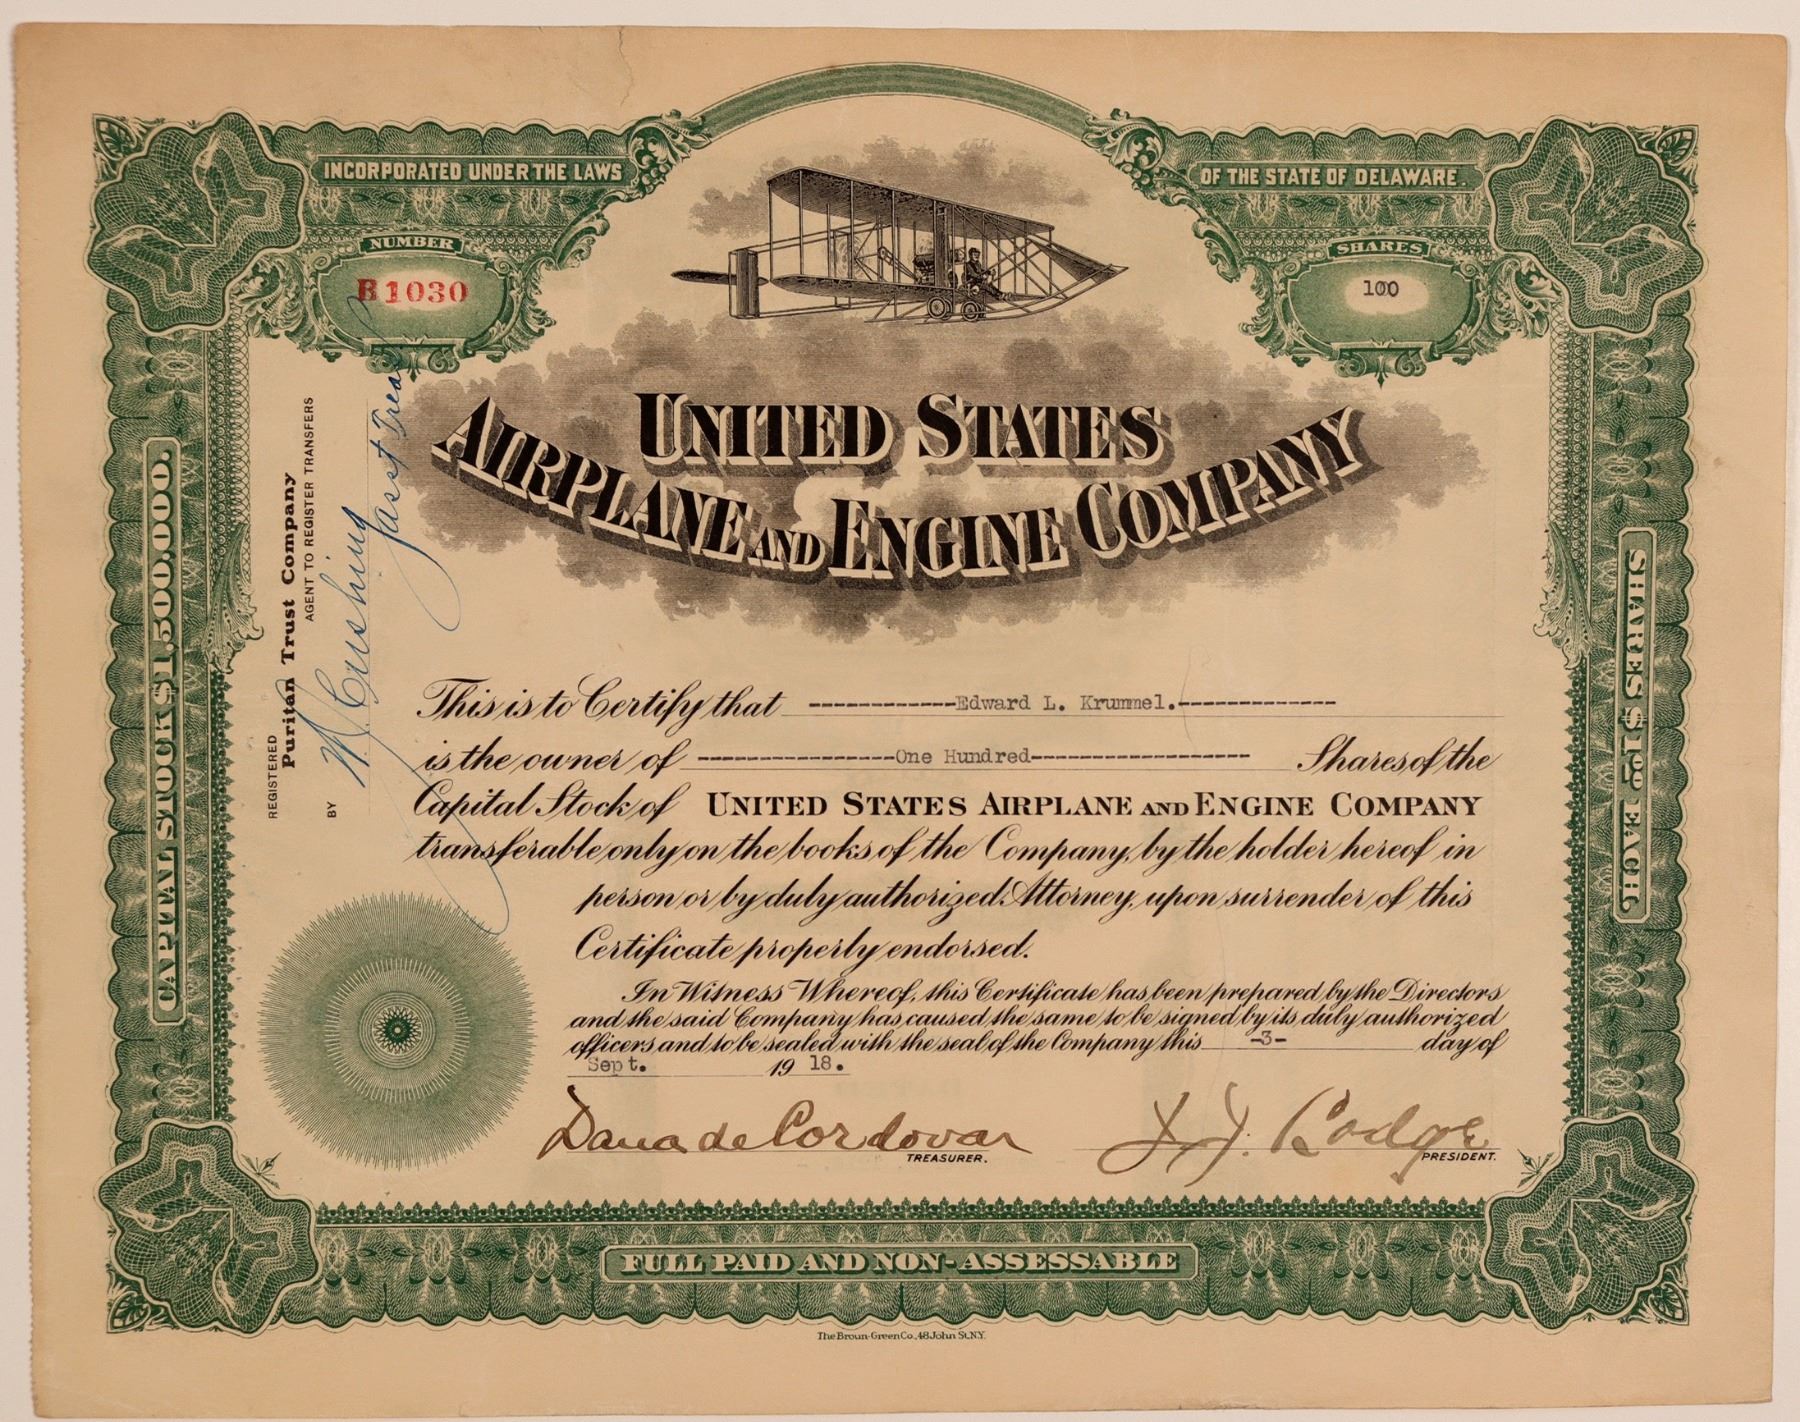 INCORPORATED UNDER THE LAWS
OF THE STATE OF DELAWARE.
NUMBER
B1030
SHARES
100
UNITED STATES
AIRPLANE AND ENGINE COMPANY
CAPITAL STOCK $1,500,000.
SHARES $1.00 EACH.
REGISTERED
Puritan Trust Company
AGENT TO REGISTER TRANSFERS
BY
Cushing
Asst Treas
This is to Certify that ------------Edward L. Krummel.-------------
is the owner of ----------------One Hundred------------------ Shares of the
Capital Stock of UNITED STATES AIRPLANE AND ENGINE COMPANY
transferable only on the books of the Company, by the holder hereof in
person or by duly authorized Attorney, upon surrender of this
Certificate properly endorsed.
In Witness Whereof, this Certificate has been prepared by the Directors
and the said Company has caused the same to be signed by its duly authorized
officers and to be sealed with the seal of the Company this -3- day of
Sept. 19 18.
Dana de Cordova
TREASURER.
J. J. Bodge
PRESIDENT.
FULL PAID AND NON-ASSESSABLE
The Broun-Green Co., 48 John St. N.Y.